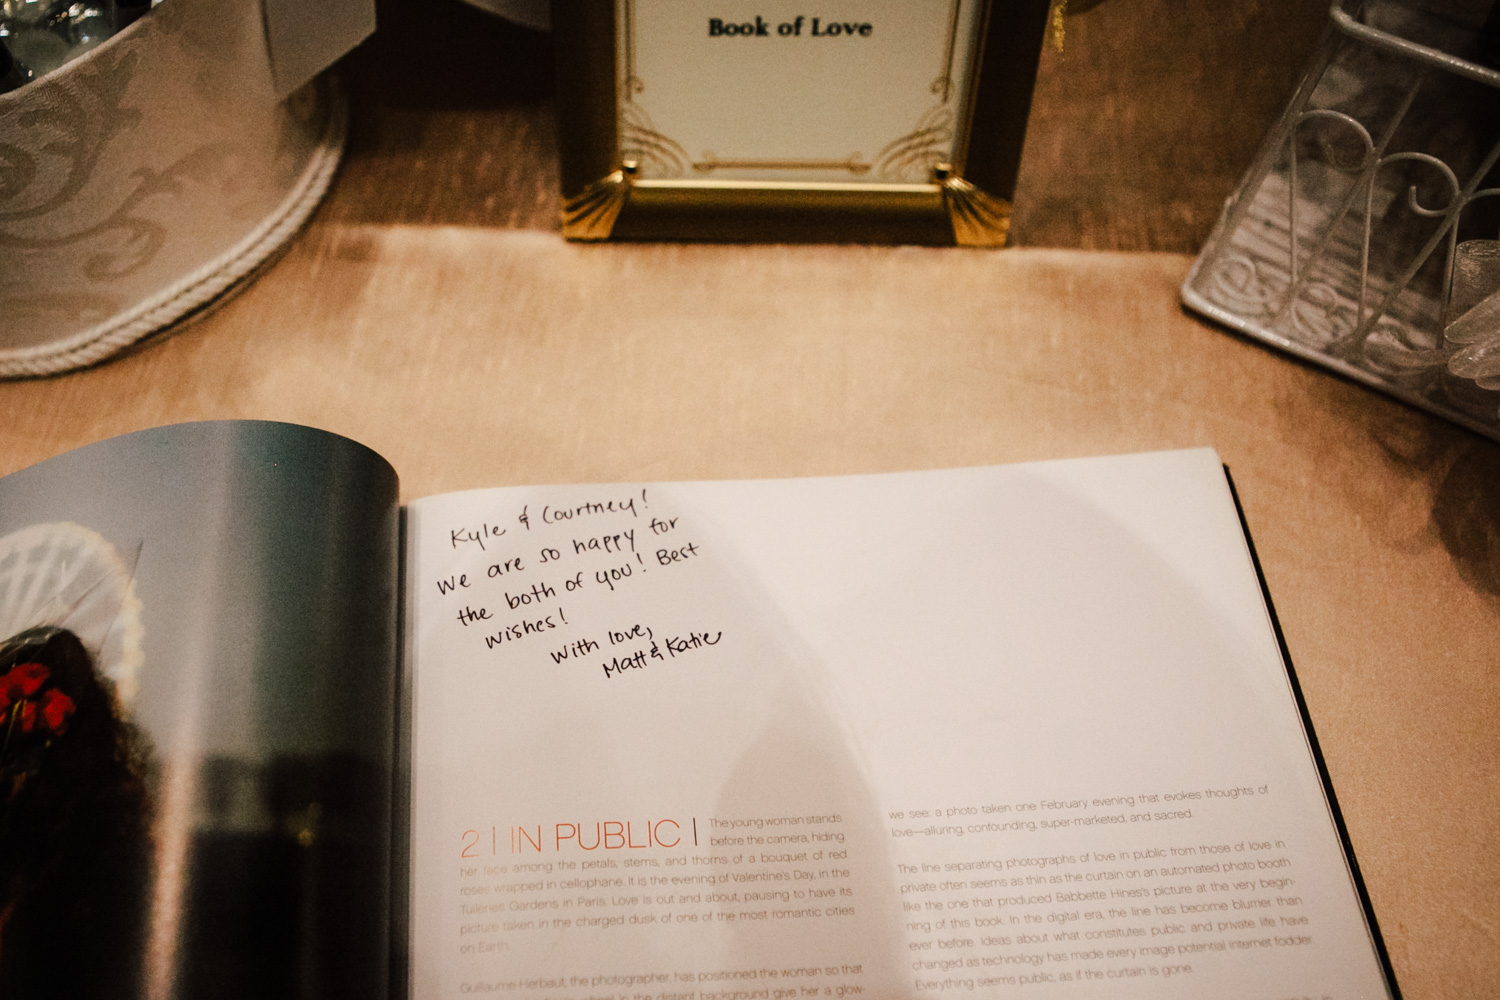 Book of Love
Kyle & Courtney!
We are so happy for
the both of you! Best
wishes!
With love,
Matt & Katie
2 | IN PUBLIC | The young woman stands
before the camera, hiding
her face among the petals, stems, and thorns of a bouquet of red
roses wrapped in cellophane. It is the evening of Valentine's Day, in the
Tuileries Gardens in Paris. Love is out and about, pausing to have its
picture taken in the charged dusk of one of the most romantic cities
on Earth.
Guillaume Herbaut, the photographer, has positioned the woman so that
wheel in the distant background give her a glow-
we see: a photo taken one February evening that evokes thoughts of
love—alluring, confounding, super-marketed, and sacred.
The line separating photographs of love in public from those of love in
private often seems as thin as the curtain on an automated photo booth
like the one that produced Babbette Hines's picture at the very begin-
ning of this book. In the digital era, the line has become blurrier than
ever before. Ideas about what constitutes public and private life have
changed as technology has made every image potential Internet fodder.
Everything seems public, as if the curtain is gone.